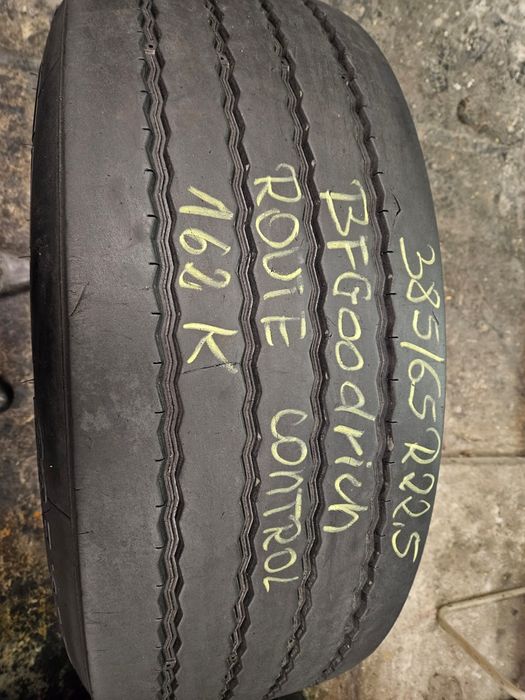 385/65 R22,5
BFGoodrich
ROUTE CONTROL
162 K